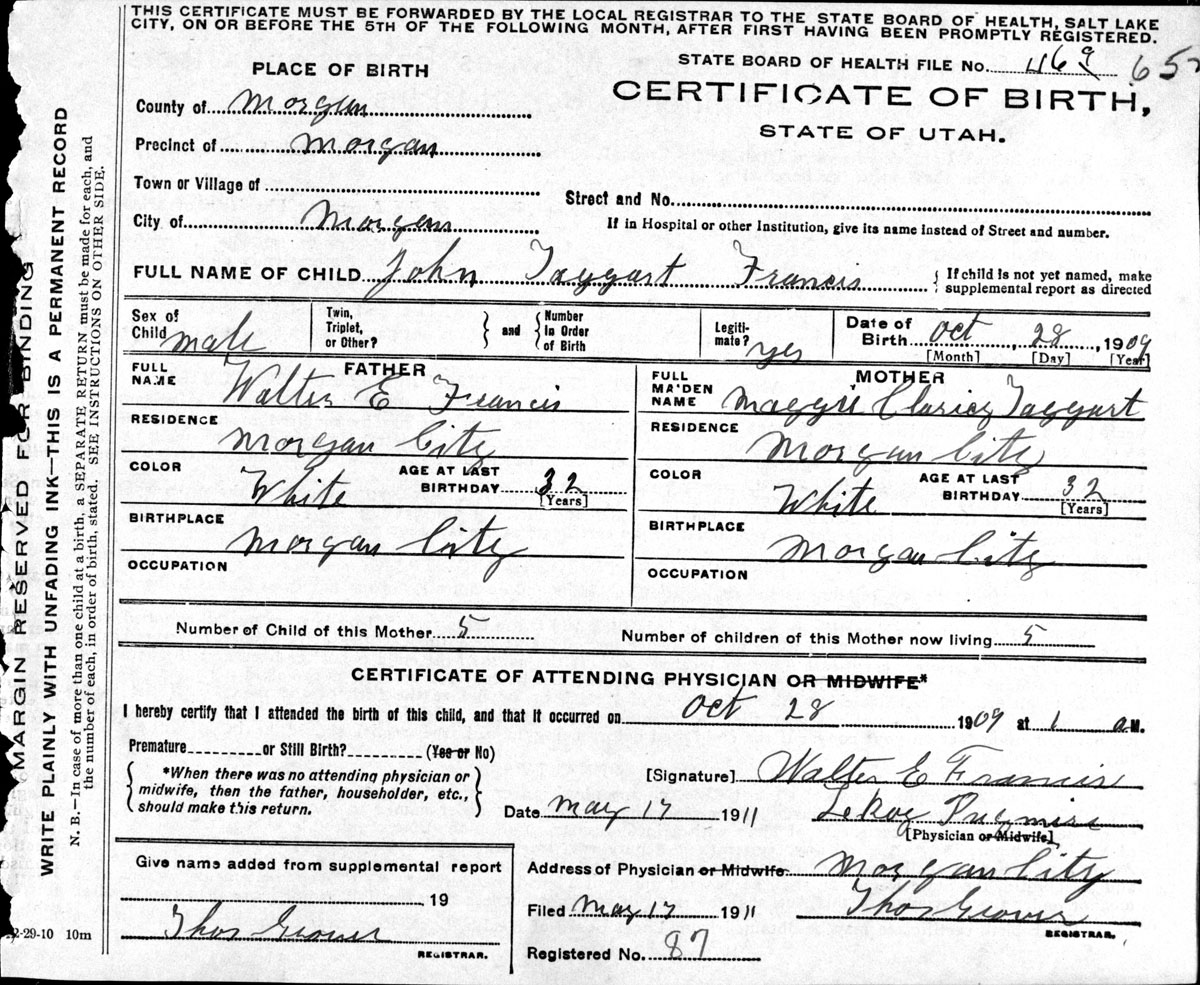 THIS CERTIFICATE MUST BE FORWARDED BY THE LOCAL REGISTRAR TO THE STATE BOARD OF HEALTH, SALT LAKE
CITY, ON OR BEFORE THE 5TH OF THE FOLLOWING MONTH, AFTER FIRST HAVING BEEN PROMPTLY REGISTERED.
MARGIN RESERVED FOR BINDING
WRITE PLAINLY WITH UNFADING INK—THIS IS A PERMANENT RECORD
N. B.—In case of more than one child at a birth, a SEPARATE RETURN must be made for each, and
the number of each, in order of birth, stated. SEE INSTRUCTIONS ON OTHER SIDE.
2-29-10 10m
STATE BOARD OF HEALTH FILE No. 469 65
PLACE OF BIRTH
CERTIFICATE OF BIRTH,
STATE OF UTAH.
County of Morgan
Precinct of Morgan
Town or Village of
Street and No.
City of Morgan
If in Hospital or other Institution, give its name instead of Street and number.
FULL NAME OF CHILD John Taggart Francis { If child is not yet named, make
supplemental report as directed
Sex of
Child male
Twin,
Triplet,
or Other? } and { Number
in Order
of Birth
Legiti-
mate? yes
Date of
Birth Oct, 28, 1909
[Month] [Day] [Year]
FATHER
FULL
NAME Walter E Francis
RESIDENCE
Morgan City
COLOR White
AGE AT LAST
BIRTHDAY 32
[Years]
BIRTHPLACE
Morgan City
OCCUPATION
MOTHER
FULL
MAIDEN
NAME Maggie Taggart
RESIDENCE
Morgan City
COLOR White
AGE AT LAST
BIRTHDAY 32
[Years]
BIRTHPLACE
Morgan City
OCCUPATION
Number of Child of this Mother 5
Number of children of this Mother now living 5
CERTIFICATE OF ATTENDING PHYSICIAN OR MIDWIFE*
I hereby certify that I attended the birth of this child, and that it occurred on Oct 28 1909 at 1 a.M.
Premature or Still Birth? (Yes or No)
{ *When there was no attending physician or
midwife, then the father, householder, etc.,
should make this return. }
[Signature] Walter E Francis
Date May 17 1911
LeRoy
[Physician or Midwife]
Give name added from supplemental report
19
Thos Grover
REGISTRAR.
Address of Physician or Midwife Morgan City
Filed May 17 1911 Thos Grover
REGISTRAR.
Registered No. 87